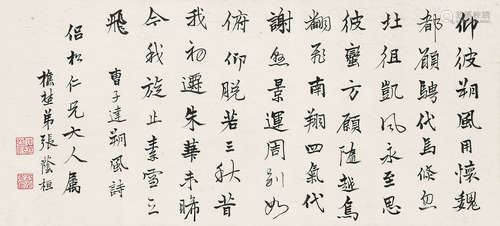 仰彼朔風用懷魏
都願騁代馬倏忽
北徂凱風永至思
彼蠻方願隨越鳥
翻飛南翔四氣代
謝懸景運周別如
俯仰脫若三秋昔
我初遷朱華未晞
今我旋止素雪云
飛 曹子建朔風詩
侶松仁兄大人屬
樵埜弟張蔭桓